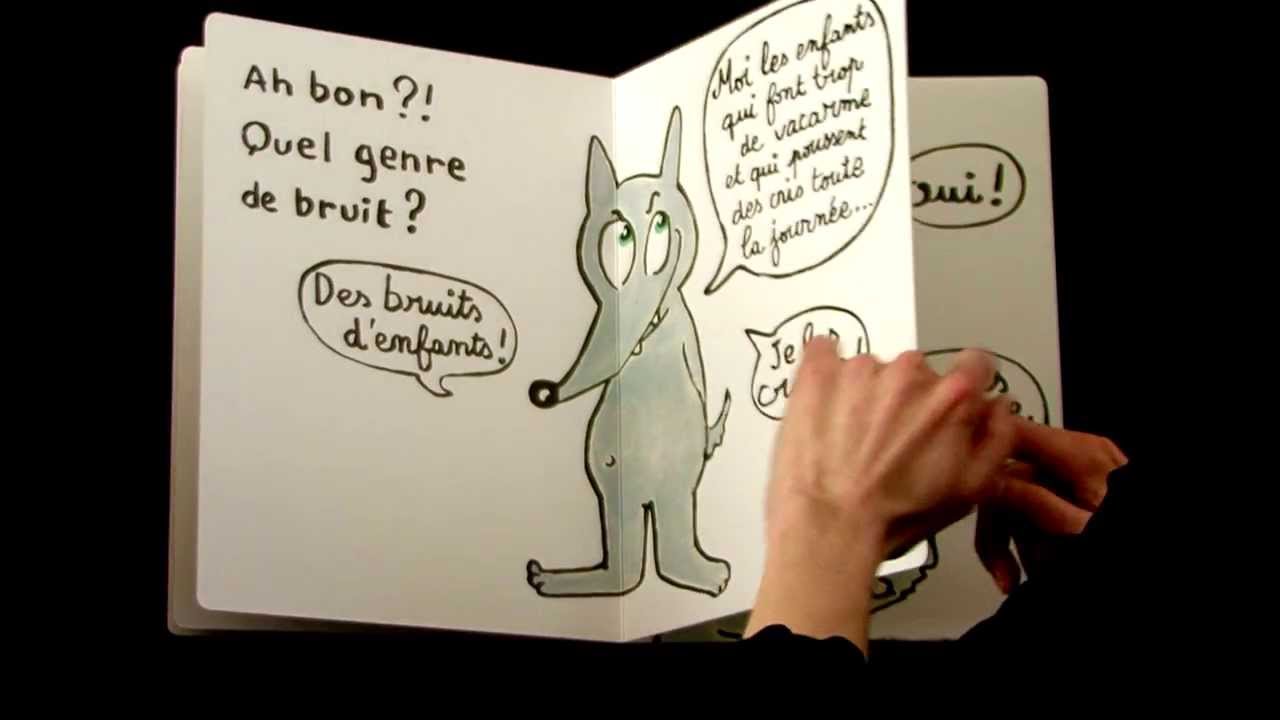 Ah bon?!
Quel genre
de bruit?
Des bruits
d'enfants!
Moi les enfants
qui font trop
de vacarme
et qui poussent
des cris toute
la journée...
Je les
!
oui!